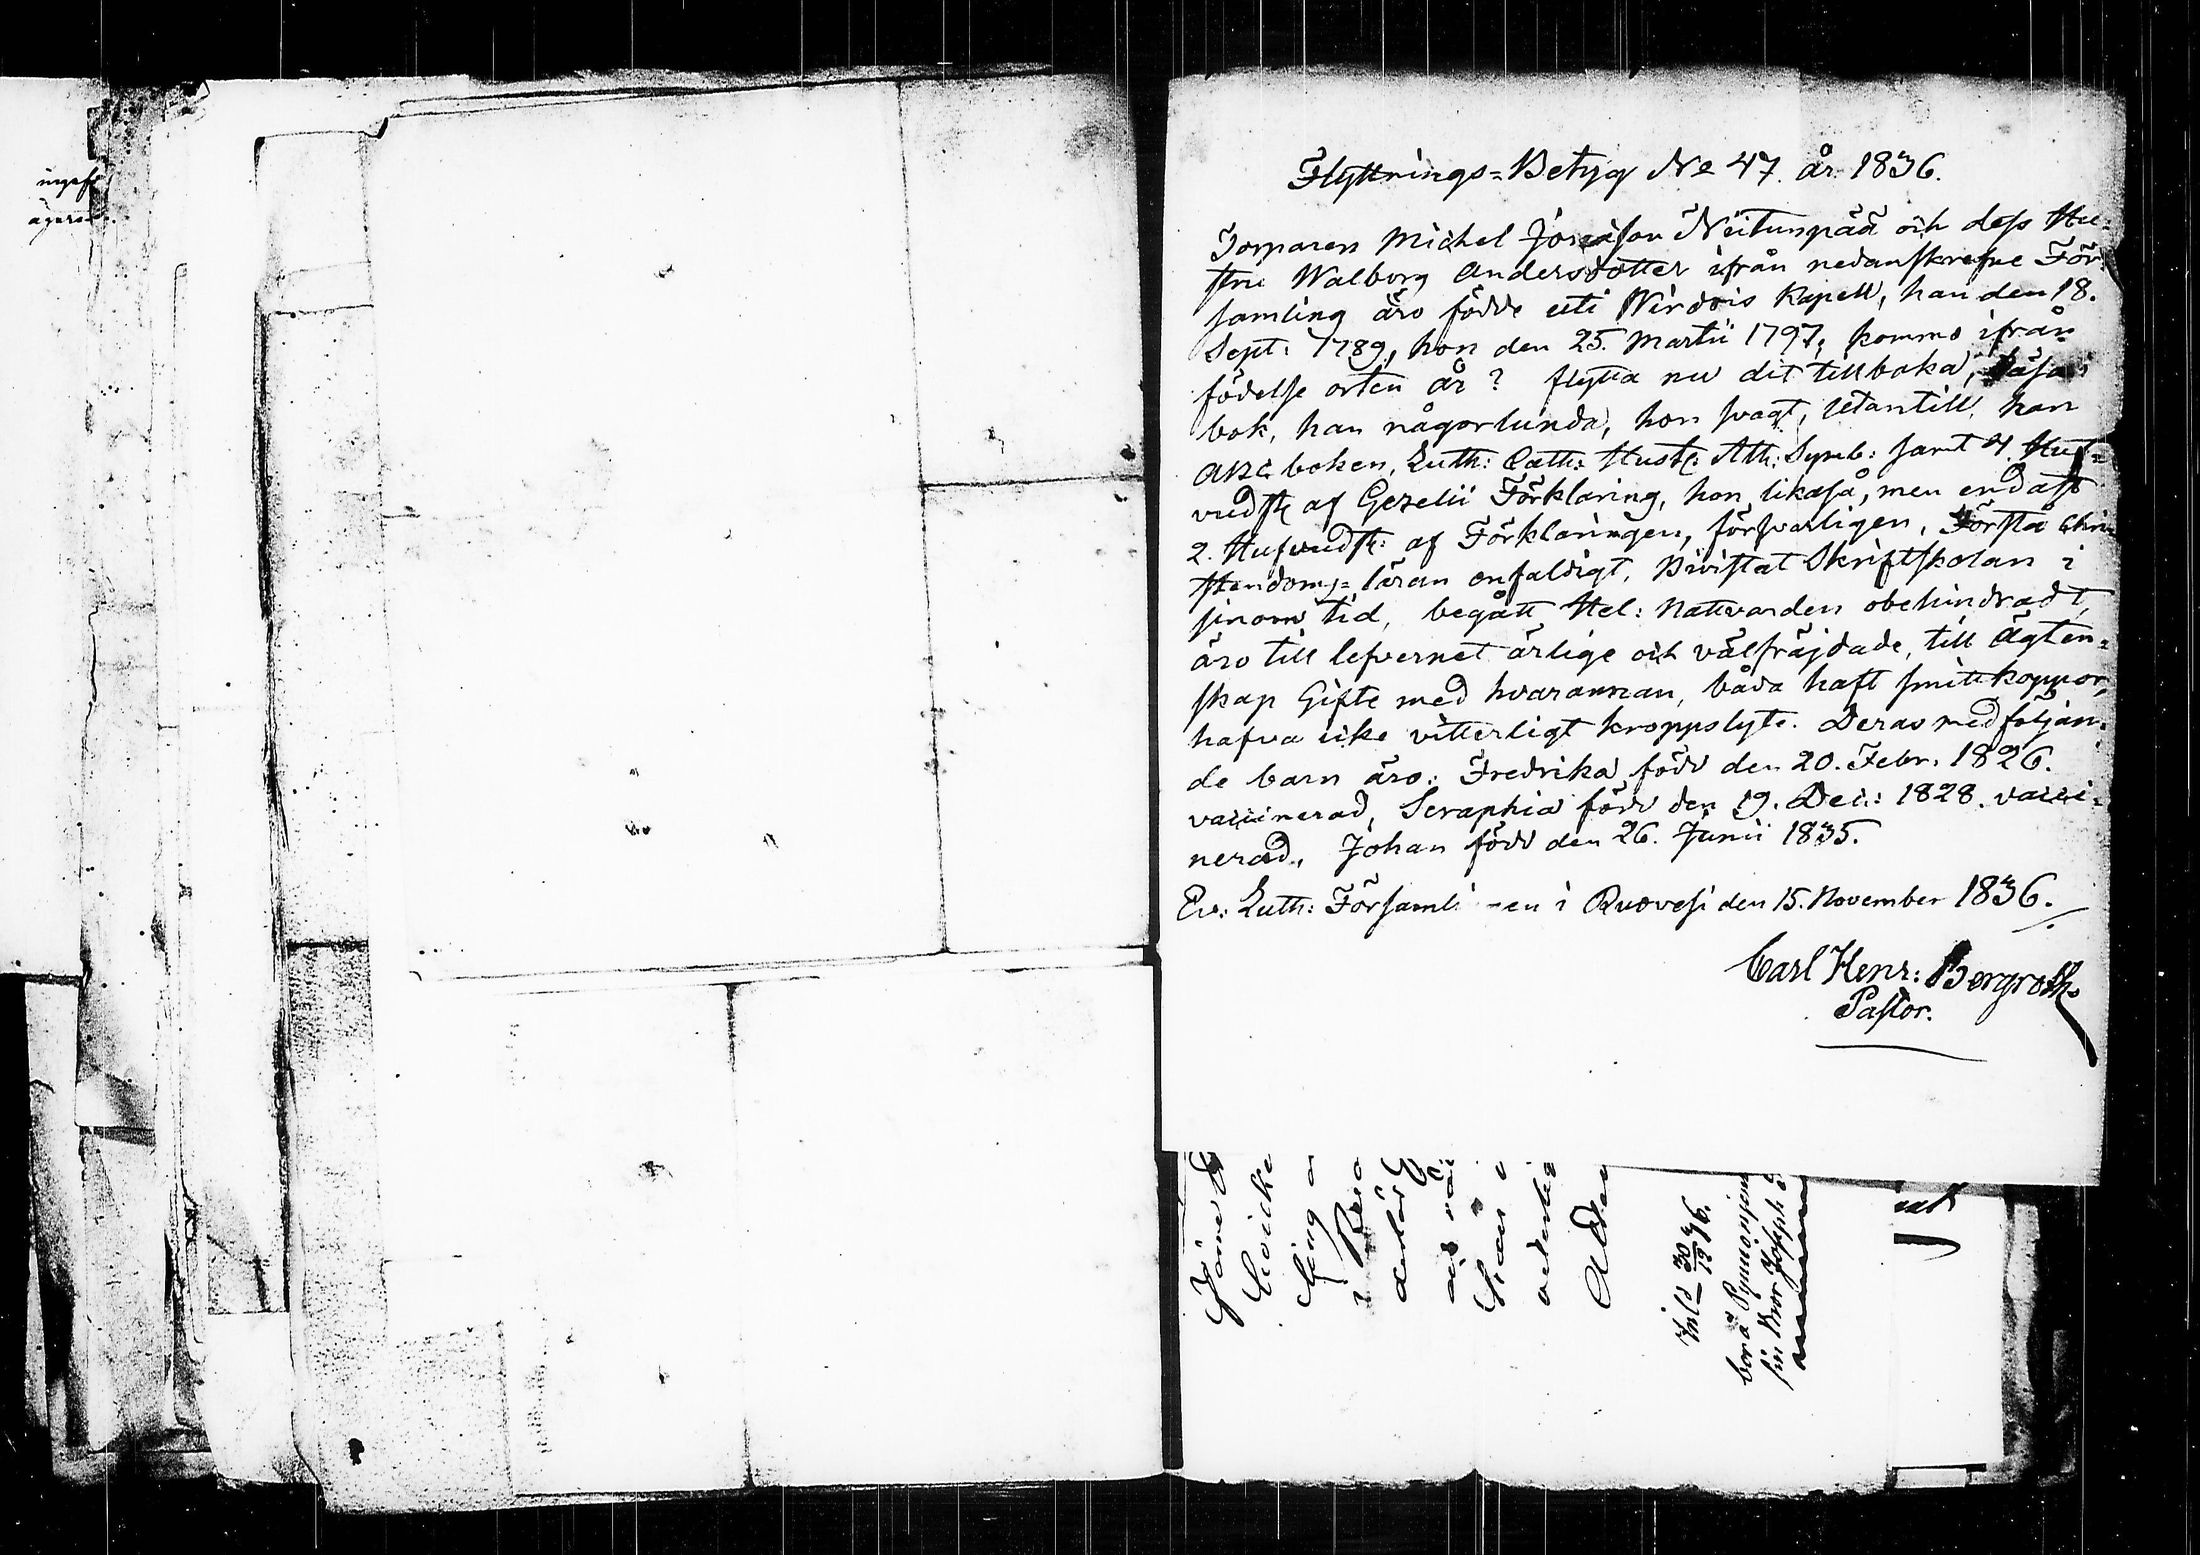 Flyttnings=Betyg No 47. år 1836.
Torparen Michel Josefsson Neitunpää och dess Hu=
stru Walborg Andersdotter ifrån nedanskrefne För=
samling äro födde uti Wirdois Kapell, han den 18.
Sept: 1789, hon den 25. Martii 1797, kommo ifrån
födelse orten år ? flytta nu dit tillbaka, läsa i
bok, han någorlunda, hon svagt, utantill, han
ABC boken, Luth: Cath: Hust: Ath: Symb: samt 4. Huf=
vudst af Gezelii Förklaring, hon likaså, men endast
2. Hufvudst: af Förklaringen, försvarligen. Förstå Chri
stendoms=läran enfaldigt, Bivistat Skriftskolan i
sinom tid, begått Hel: Nattvarden obehindradt,
äro till lefvernet ärlige och välfräjdade, till Ägten=
skap Gifte med hvarannan, båda haft smittkoppor,
hafva icke vitterligt kroppslyte. Deras medföljan=
de barn äro: Fredrika född den 20. Febr. 1826.
vaccinerad, Seraphia född den 19. Dec: 1828. vacci=
nerad, Johan född den 26. Junii 1835.
Ev: Luth: Församli en i Ruovesi den 15. November 1836.
Carl Henr: Bergroth
Pastor.
Inl 30/12 36.
sin Bror Joseph